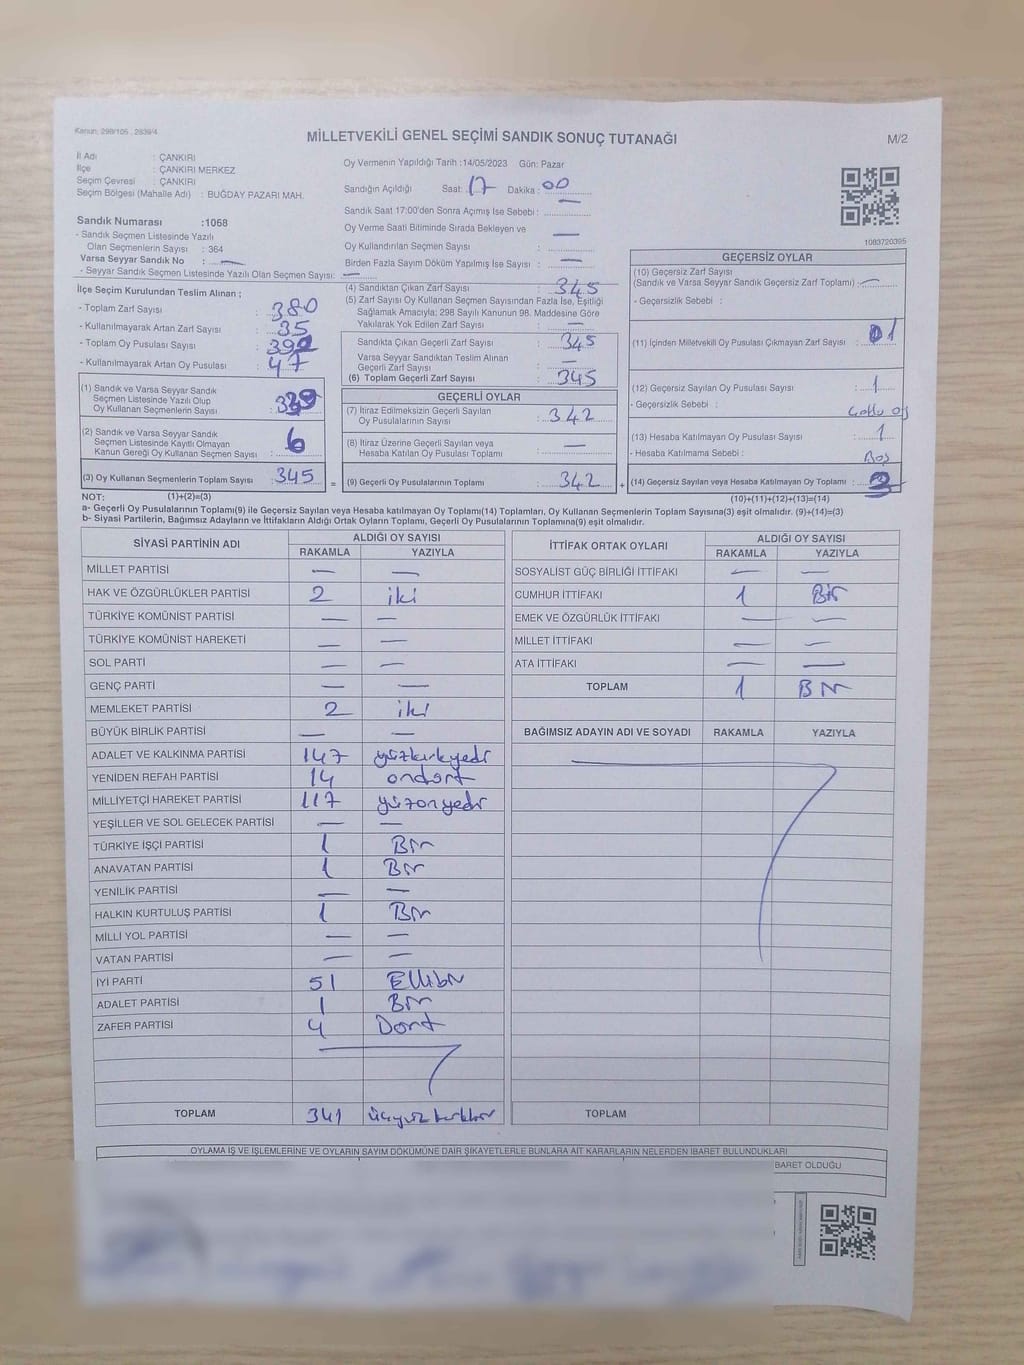 Kanun: 298/105 , 2839/4
MİLLETVEKİLİ GENEL SEÇİMİ SANDIK SONUÇ TUTANAĞI
M/2
İl Adı : ÇANKIRI
İlçe : ÇANKIRI MERKEZ
Seçim Çevresi : ÇANKIRI
Seçim Bölgesi (Mahalle Adı) : BUĞDAY PAZARI MAH.
Sandık Numarası :1068
- Sandık Seçmen Listesinde Yazılı
Olan Seçmenlerin Sayısı : 364
Varsa Seyyar Sandık No : —
- Seyyar Sandık Seçmen Listesinde Yazılı Olan Seçmen Sayısı: —
İlçe Seçim Kurulundan Teslim Alınan ;
- Toplam Zarf Sayısı : 380
- Kullanılmayarak Artan Zarf Sayısı : 35
- Toplam Oy Pusulası Sayısı : 392
- Kullanılmayarak Artan Oy Pusulası : 47
(1) Sandık ve Varsa Seyyar Sandık
Seçmen Listesinde Yazılı Olup
Oy Kullanan Seçmenlerin Sayısı : 339
(2) Sandık ve Varsa Seyyar Sandık
Seçmen Listesinde Kayıtlı Olmayan
Kanun Gereği Oy Kullanan Seçmen Sayısı : 6
(3) Oy Kullanan Seçmenlerin Toplam Sayısı : 345 =
Oy Vermenin Yapıldığı Tarih :14/05/2023 Gün: Pazar
Sandığın Açıldığı Saat: 17 Dakika : 00
Sandık Saat 17:00'den Sonra Açımış İse Sebebi : —
Oy Verme Saati Bitiminde Sırada Bekleyen ve
Oy Kullandırılan Seçmen Sayısı : —
Birden Fazla Sayım Döküm Yapılmış İse Sayısı : —
(4) Sandıktan Çıkan Zarf Sayısı : 345
(5) Zarf Sayısı Oy Kullanan Seçmen Sayısından Fazla İse, Eşitliği
Sağlamak Amacıyla; 298 Sayılı Kanunun 98. Maddesine Göre
Yakılarak Yok Edilen Zarf Sayısı : —
Sandıkta Çıkan Geçerli Zarf Sayısı : 345
Varsa Seyyar Sandıktan Teslim Alınan
Geçerli Zarf Sayısı : —
(6) Toplam Geçerli Zarf Sayısı : 345
GEÇERLİ OYLAR
(7) İtiraz Edilmeksizin Geçerli Sayılan
Oy Pusulalarının Sayısı : 342
(8) İtiraz Üzerine Geçerli Sayılan veya
Hesaba Katılan Oy Pusulası Toplamı : —
(9) Geçerli Oy Pusulalarının Toplamı : 342 +
1083720395
GEÇERSİZ OYLAR
(10) Geçersiz Zarf Sayısı
(Sandık ve Varsa Seyyar Sandık Geçersiz Zarf Toplamı) : —
- Geçersizlik Sebebi :
(11) İçinden Milletvekili Oy Pusulası Çıkmayan Zarf Sayısı : 1
(12) Geçersiz Sayılan Oy Pusulası Sayısı : 1
- Geçersizlik Sebebi :
(13) Hesaba Katılmayan Oy Pusulası Sayısı : 1
- Hesaba Katılmama Sebebi : Boş
(14) Geçersiz Sayılan veya Hesaba Katılmayan Oy Toplamı : 3
NOT: (1)+(2)=(3) (10)+(11)+(12)+(13)=(14)
a- Geçerli Oy Pusulalarının Toplamı(9) ile Geçersiz Sayılan veya Hesaba Katılmayan Oy Toplamı(14) Toplamları, Oy Kullanan Seçmenlerin Toplam Sayısına(3) eşit olmalıdır. (9)+(14)=(3)
b- Siyasi Partilerin, Bağımsız Adayların ve İttifakların Aldığı Ortak Oyların Toplamı, Geçerli Oy Pusulalarının Toplamına(9) eşit olmalıdır.
SİYASİ PARTİNİN ADI ALDIĞI OY SAYISI
RAKAMLA YAZIYLA
MİLLET PARTİSİ — —
HAK VE ÖZGÜRLÜKLER PARTİSİ 2 iki
TÜRKİYE KOMÜNİST PARTİSİ — —
TÜRKİYE KOMÜNİST HAREKETİ — —
SOL PARTİ — —
GENÇ PARTİ — —
MEMLEKET PARTİSİ 2 iki
BÜYÜK BİRLİK PARTİSİ — —
ADALET VE KALKINMA PARTİSİ 147 yüzkırkyedi
YENİDEN REFAH PARTİSİ 14 ondört
MİLLİYETÇİ HAREKET PARTİSİ 117 yüzonyedi
YEŞİLLER VE SOL GELECEK PARTİSİ — —
TÜRKİYE İŞÇİ PARTİSİ 1 Bir
ANAVATAN PARTİSİ 1 Bir
YENİLİK PARTİSİ — —
HALKIN KURTULUŞ PARTİSİ 1 Bir
MİLLİ YOL PARTİSİ — —
VATAN PARTİSİ — —
İYİ PARTİ 51 Ellibir
ADALET PARTİSİ 1 Bir
ZAFER PARTİSİ 4 Dört
TOPLAM 341 üçyüzkırkbir
İTTİFAK ORTAK OYLARI ALDIĞI OY SAYISI
RAKAMLA YAZIYLA
SOSYALİST GÜÇ BİRLİĞİ İTTİFAKI — —
CUMHUR İTTİFAKI 1 Bir
EMEK VE ÖZGÜRLÜK İTTİFAKI — —
MİLLET İTTİFAKI — —
ATA İTTİFAKI — —
TOPLAM 1 Bir
BAĞIMSIZ ADAYIN ADI VE SOYADI RAKAMLA YAZIYLA
TOPLAM
OYLAMA İŞ VE İŞLEMLERİNE VE OYLARIN SAYIM DÖKÜMÜNE DAİR ŞİKAYETLERLE BUNLARA AİT KARARLARIN NELERDEN İBARET BULUNDUKLARI
BARET OLDUĞU